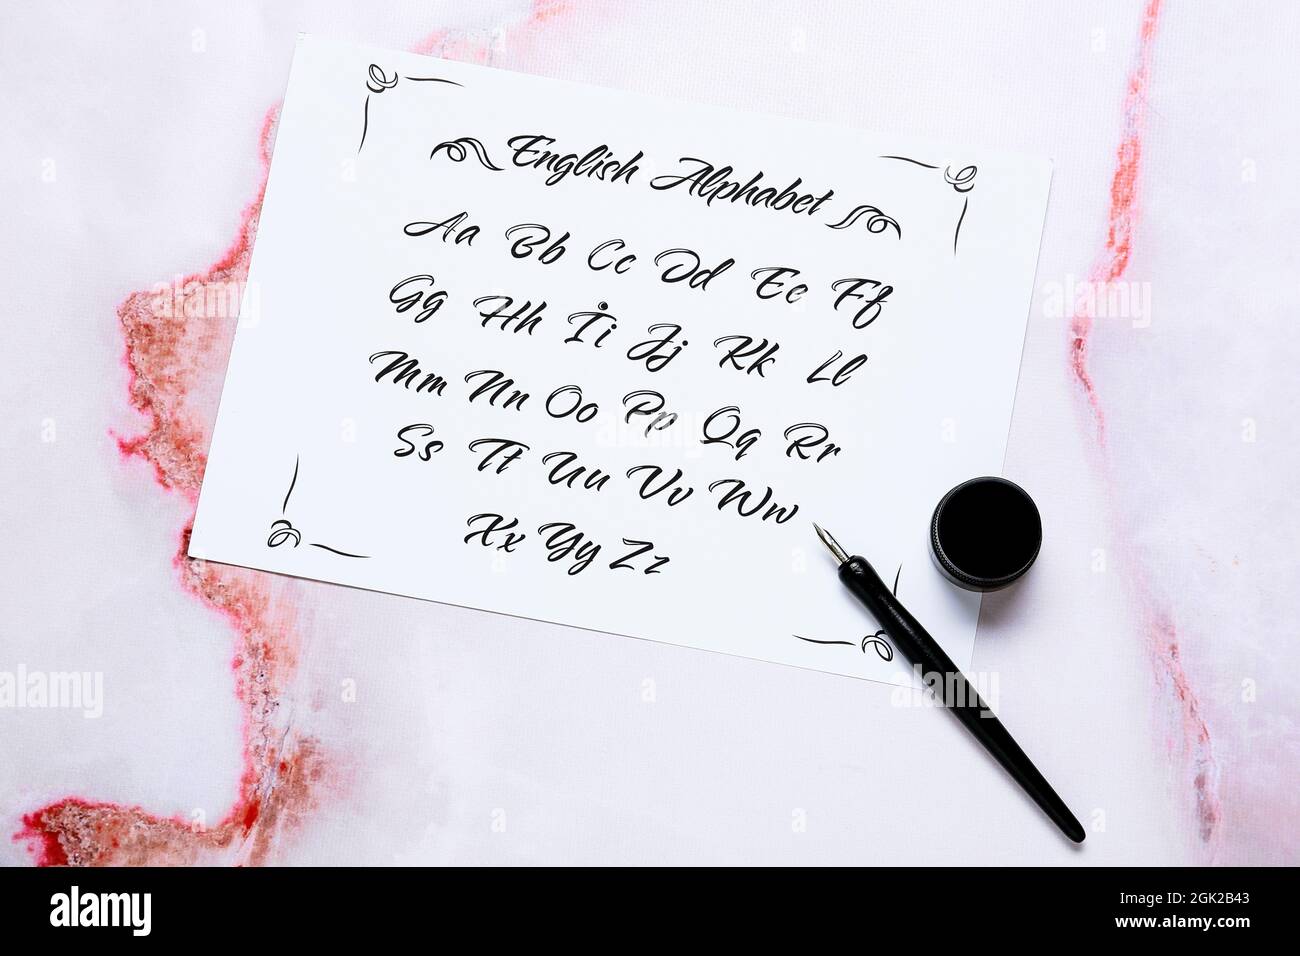 English Alphabet
Aa Bb Cc Dd Ee Ff
Gg Hh İi Jj Kk Ll
Mm Nn Oo Pp Qq Rr
Ss Tt Uu Vv Ww
Xx Yy Zz
alamy
Image ID: 2GK2B43
www.alamy.com